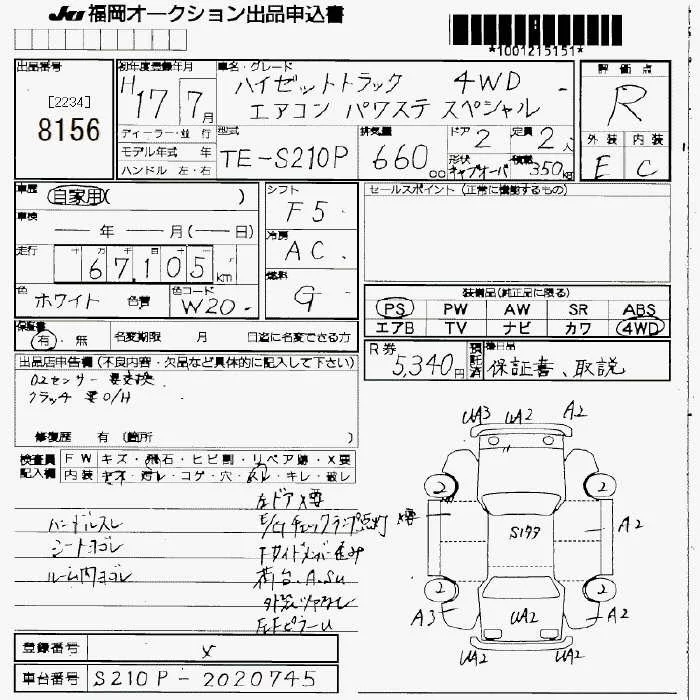 JU 福岡オークション出品申込書
*1001215151*
出品番号
[2234]
8156
初年度登録年月
H17年7月
ディーラー・並行
モデル年式 年
ハンドル 左・右
車名・グレード
ハイゼットトラック 4WD
エアコン パワステ スペシャル
型式
TE-S210P
排気量
660 cc
ドア 2
定員 2人
形状 キャブオーバ
積載 350kg
評価点
R
外装 内装
E C
車歴 自家用( )
車検 ー年ー月(ー日)
走行 十万千百十
67,105 km
色 ホワイト 色替
色コード W20
シフト
F5
冷房
AC
燃料
G
セールスポイント(正常に機能するもの)
装備品(純正品に限る)
PS PW AW SR ABS
エアB TV ナビ カワ 4WD
保証書
有・無 名変期限 月 日迄に名変できる方
R券 5,340円
預託済
後日品
保証書、取説
出品店申告欄(不良内容・欠品など具体的に記入して下さい)
O2センサー 要交換
クラッチ 要O/H
修復歴 有(箇所 )
検査員記入欄
FW キズ・飛石・ヒビ割・リペア跡・X要
内装 ヤネ・汚レ・コゲ・穴・スレ・キレ・破レ
ハンドルスレ
シートヨゴレ
ルーム内ヨゴレ
左ドアX要
E/Gチェックランプ点灯
Fサイドメンバー歪み
荷台、A.SU
外装ツヤなし
UA3 UA2 A2
2 2
X要
A2
2 2
A3 UA2 A2
UA2 UA2
登録番号 x
車台番号 S210P-2020745